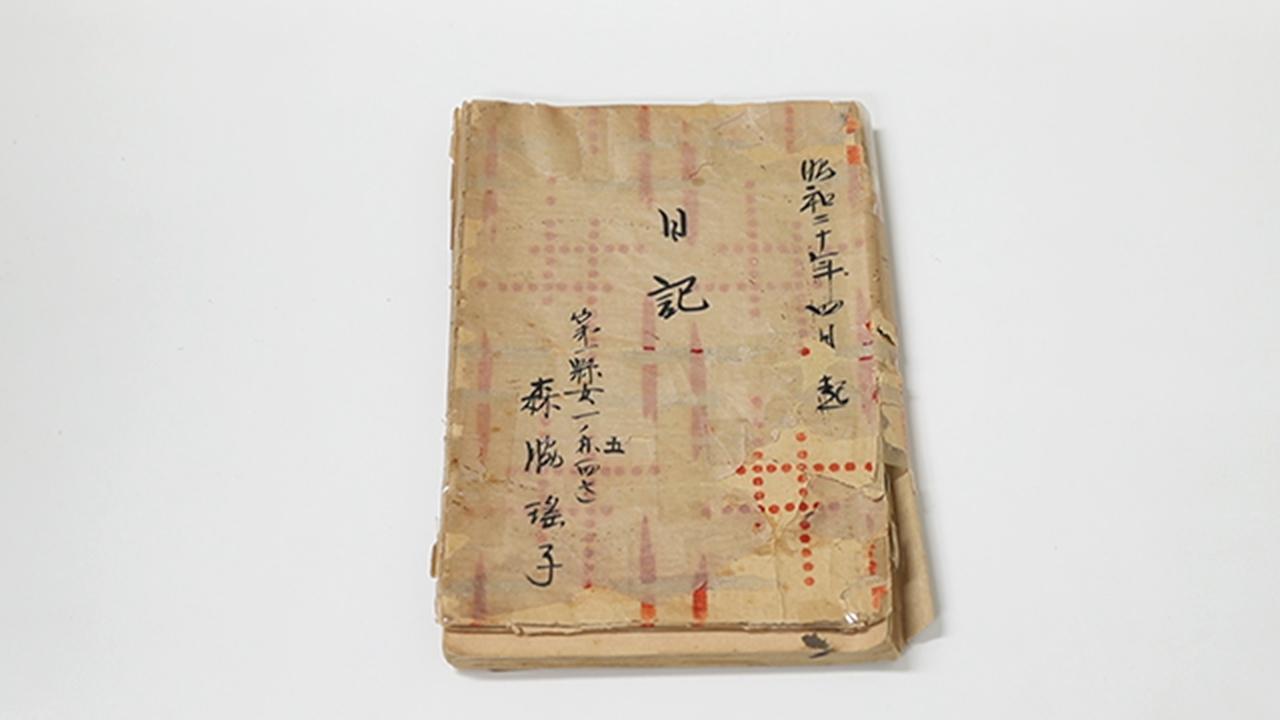 昭和二十年四月 起
日記
五
第一縣女一年
森脇瑶子